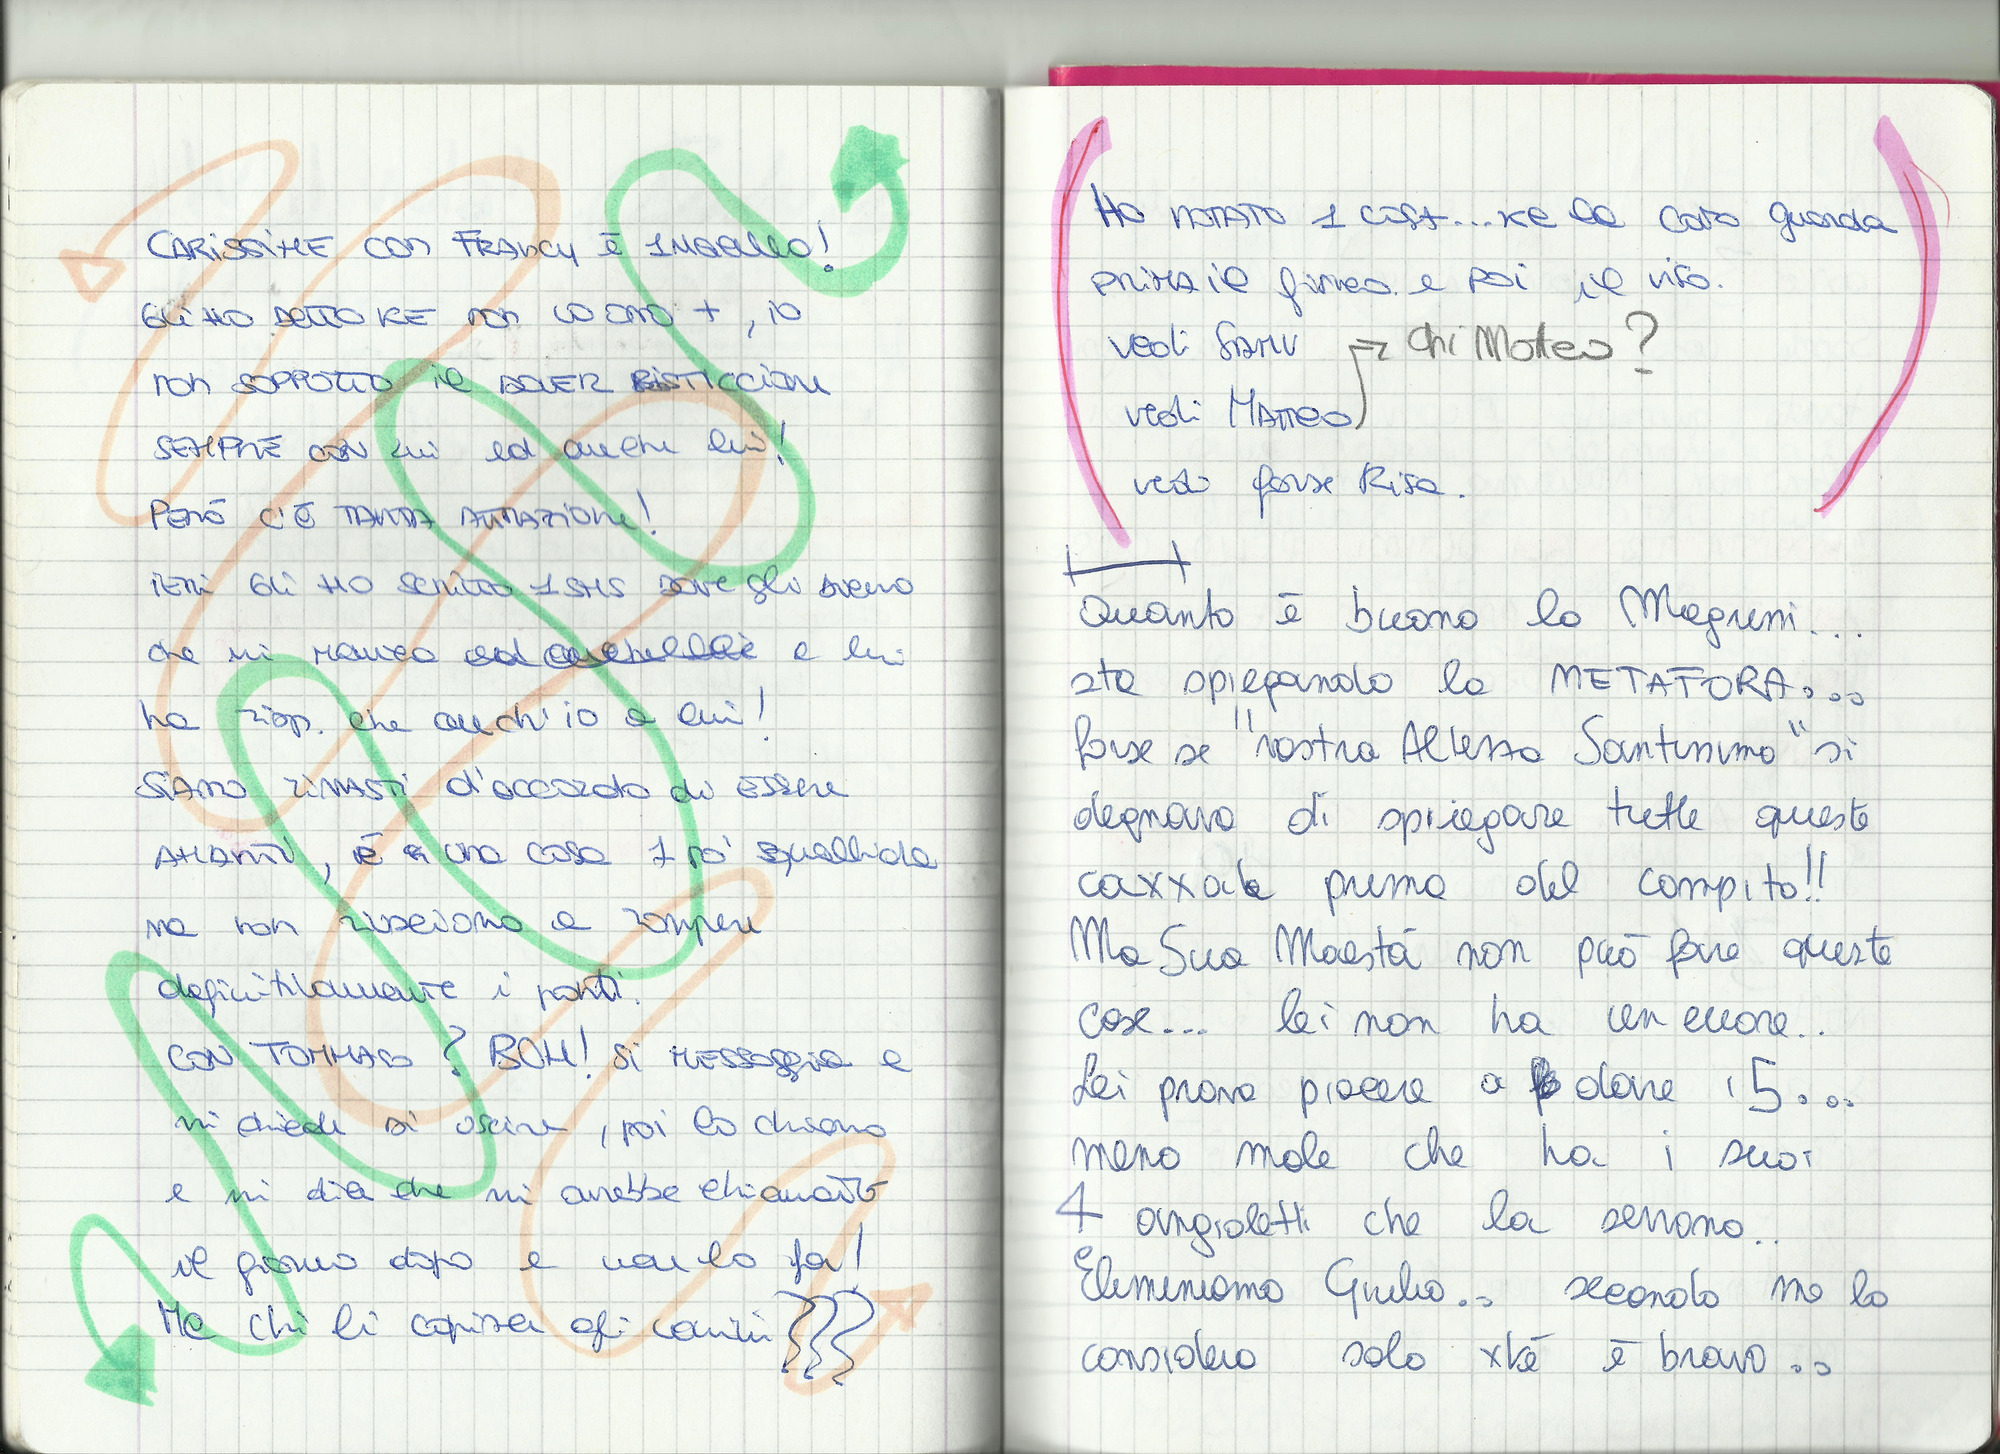 CARISSIME CON FRANCY È 1 MACELLO!
GLI HO DETTO KE non LO AMO +, io
non SOPPORTO il DOVER BISTICCIARE
SEMPRE CON lui ed anche lui!
Però C'È TANTA ATTRAZIONE!
IERI GLI HO SCRITTO 1 SMS dove gli dicevo
che mi manca e lui
ha risp. che anch'io a lui!
SIAMO RIMASTI d'accordo di ESSERE
AMANTI, è una cosa 1 po' squallida
ma non riusciamo a rompere
definitivamente i ponti.
CON TOMMASO? BOH! Si MESSAGGIA e
mi chiede di uscire, poi lo chiamo
e mi dice che mi avrebbe chiamato
il giorno dopo e non lo fa!
Ma chi li capisce gli uomini???
HO NOTATO 1 COSA...KE la Caro guarda
PRIMA il fisico e poi il viso.
vedi SAMU → Chi Matteo?
vedi MATTEO
vedi forse Risa.
Quanto è buona la Magrini...
sta spiegando la METAFORA...
forse se "vostra Altezza Santissima" si
degnava di spiegare tutte queste
caxxate prima del compito!!
Ma Sua Maestà non può fare queste
cose... lei non ha un cuore..
Lei prova piacere a dare i 5...
meno male che ha i suoi
4 angioletti che la servono..
Eliminiamo Giulio.. secondo me lo
considera solo xké è bravo..